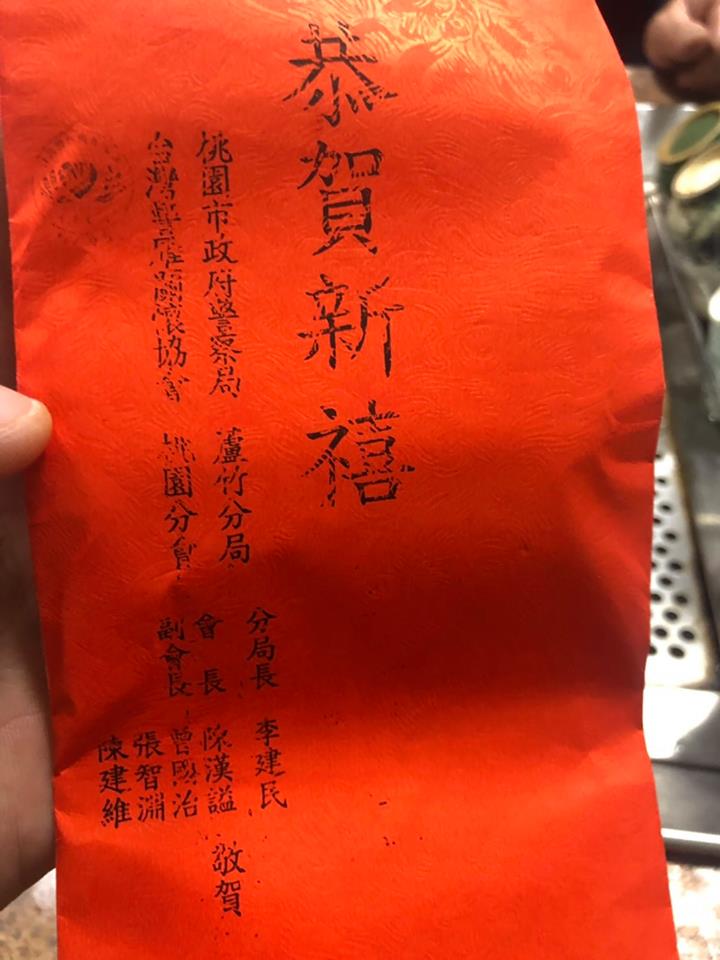 恭賀新禧
桃園市政府警察局 蘆竹分局
台灣 關懷協會 桃園分會
分局長 李建民
會長 陳漢謚
副會長 曾國治
張智淵
陳建維
敬賀